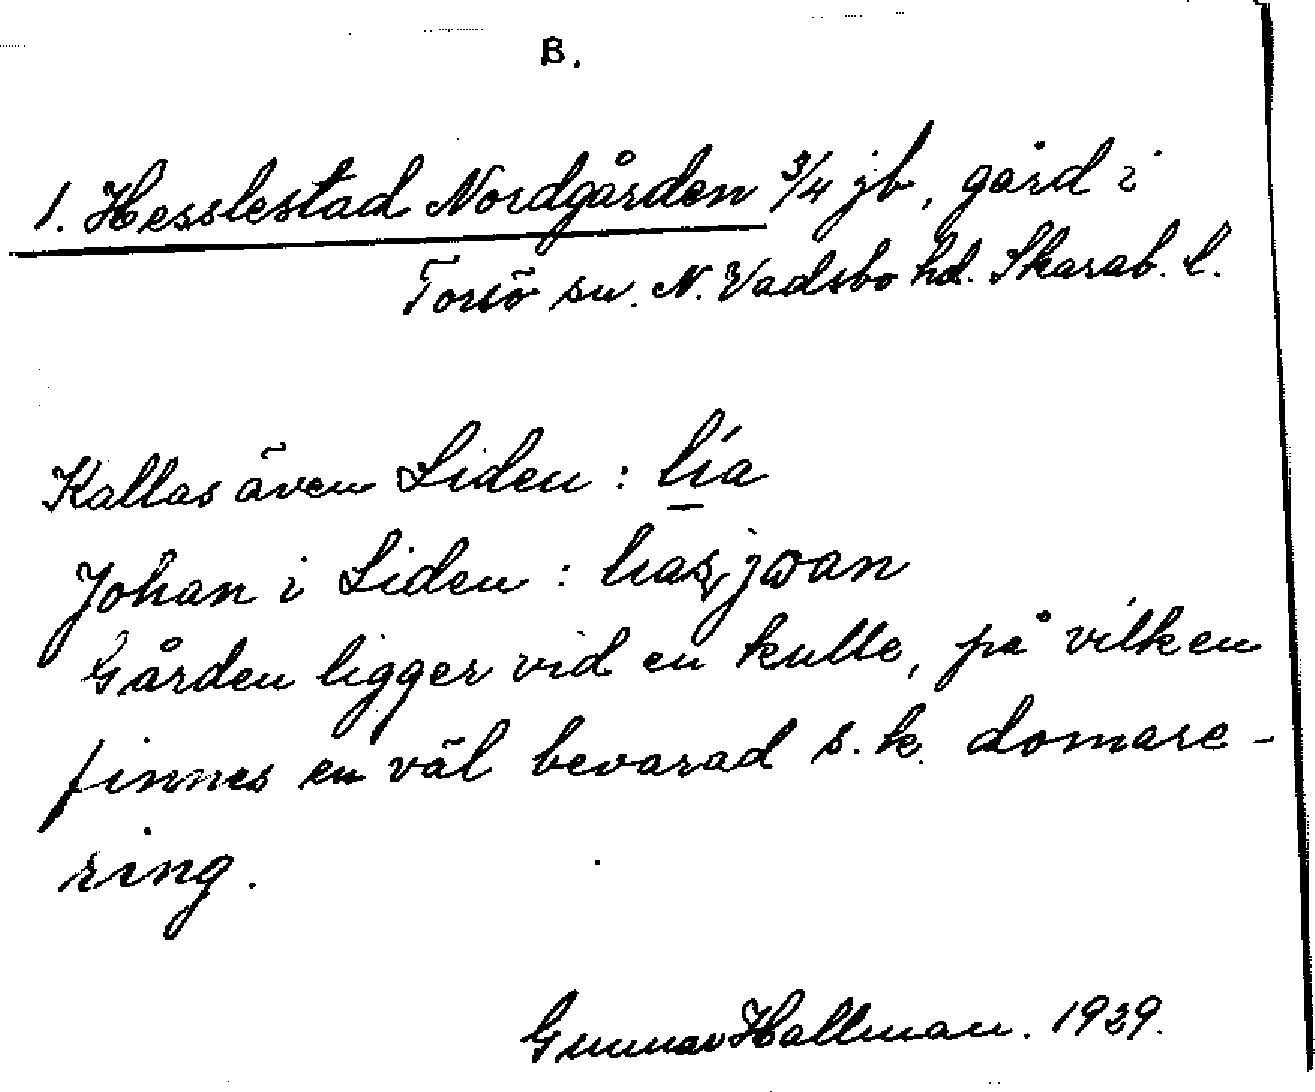 B.
1. Hesslestad Nordgården 3/4 jb, gård i
Torsö sn. N. Vadsbo hd. Skarab. l.
Kallas även Liden : lía
Johan i Liden :
Gården ligger vid en kulle, på vilken
finnes en väl bevarad s.k. domare-
ring.
Gunnar Hallman. 1929.